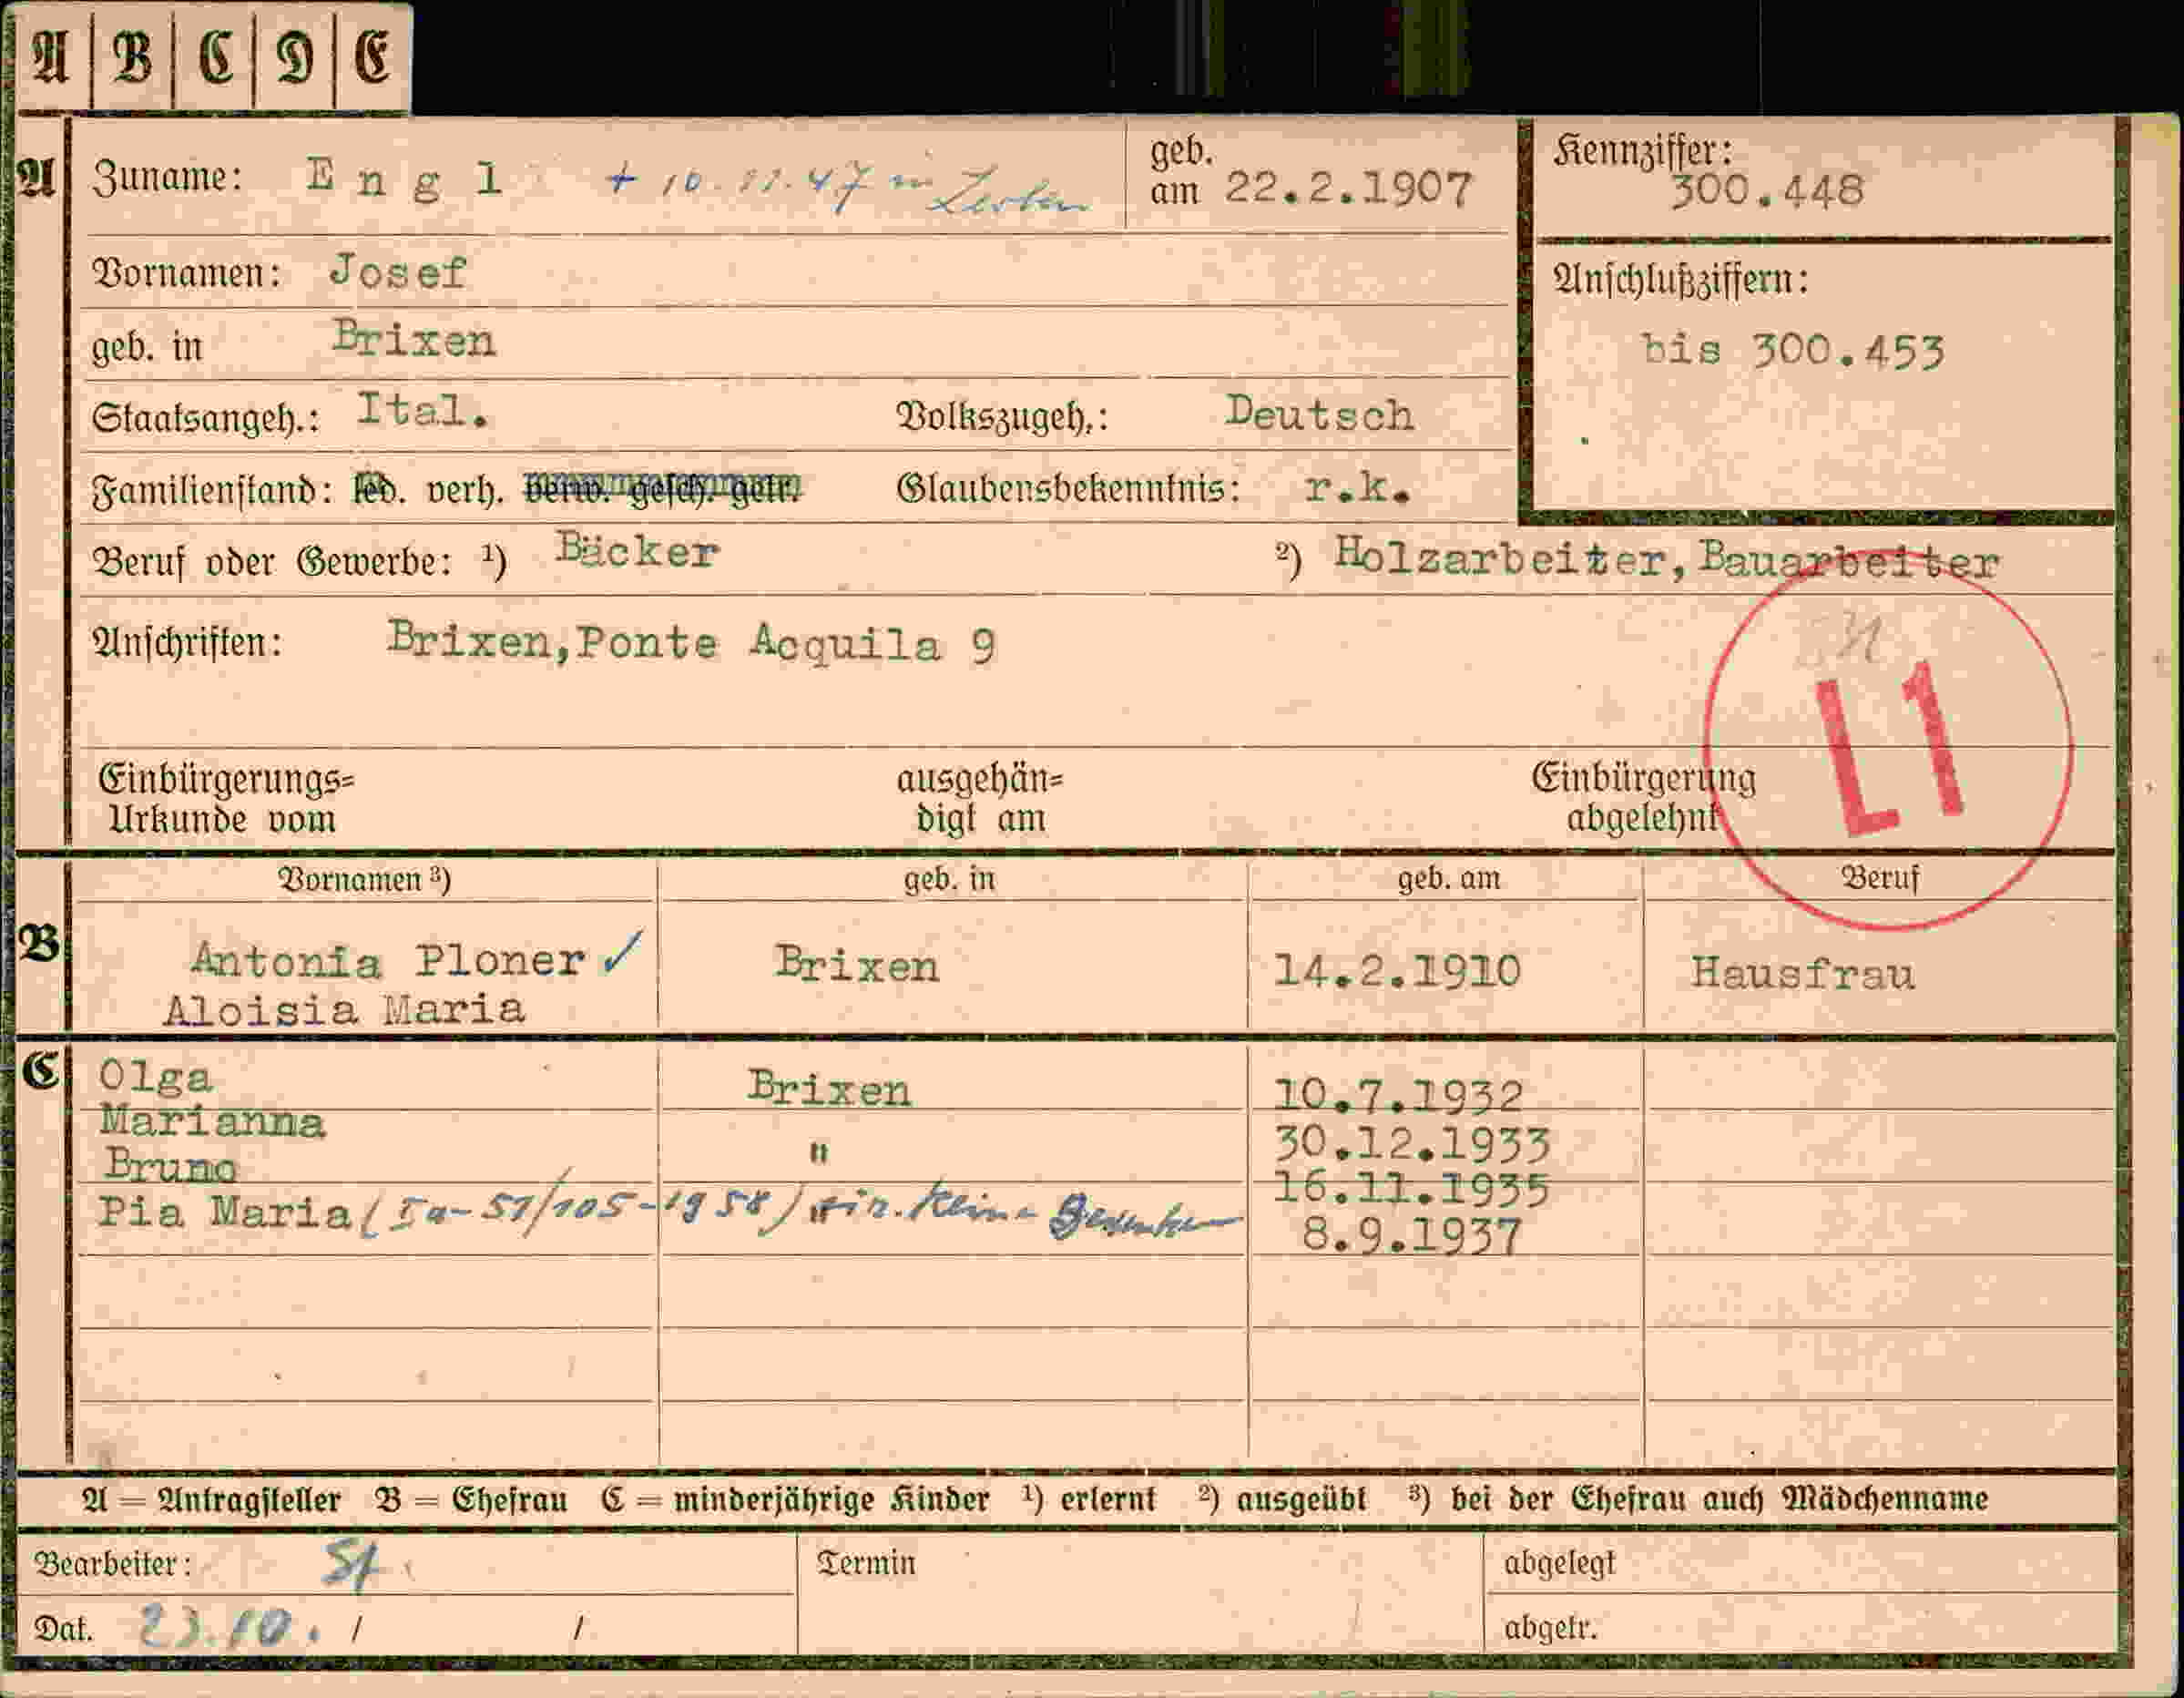 A B C D E
A Zuname: Engl + 10.11.47 in geb. am 22.2.1907
Kennziffer: 300.448
Vornamen: Josef
Anschlußziffern: bis 300.453
geb. in Brixen
Staatsangeh.: Ital. Volkszugeh.: Deutsch
Familienstand: led. verh. verw. gesch. getr. Glaubensbekenntnis: r.k.
Beruf oder Gewerbe: ¹) Bäcker ²) Holzarbeiter, Bauarbeiter
Anschriften: Brixen, Ponte Acquila 9
L1
Einbürgerungs= ausgehän= Einbürgerung
Urkunde vom digt am abgelehnt
Vornamen ³) geb. in geb. am Beruf
B Antonia Ploner ✓ Brixen 14.2.1910 Hausfrau
Aloisia Maria
C Olga Brixen 10.7.1932
Marianna 30.12.1933
Bruno " 16.11.1935
Pia Maria (Ia-51/105-1958) keine 8.9.1937
A = Antragsteller B = Ehefrau C = minderjährige Kinder ¹) erlernt ²) ausgeübt ³) bei der Ehefrau auch Mädchenname
Bearbeiter: St Termin abgelegt
Dat. 23.10. / / abgetr.